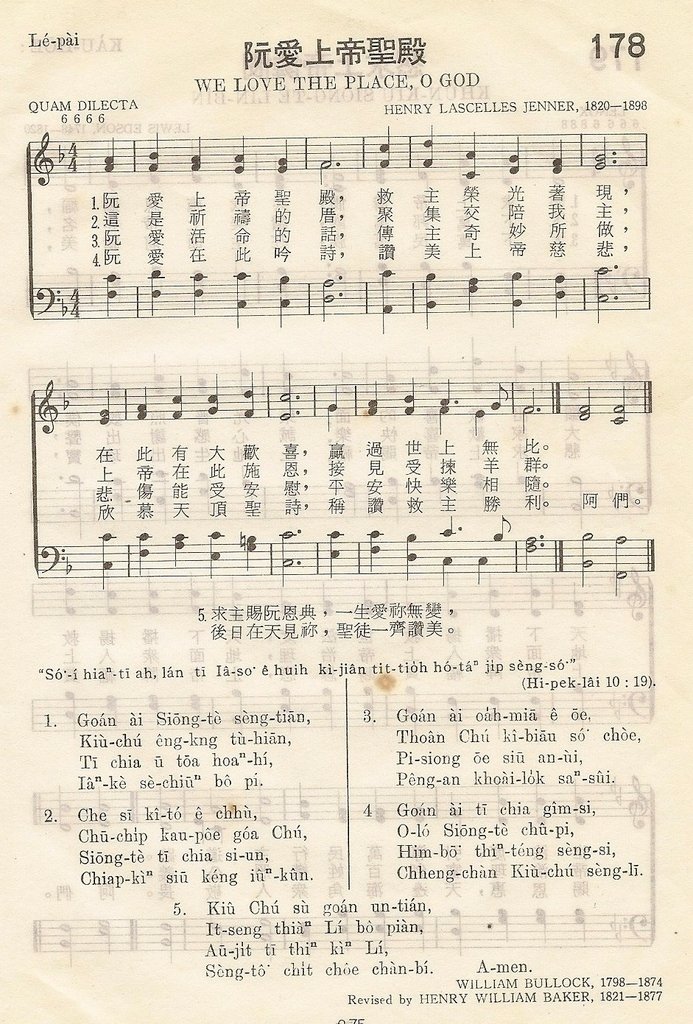 Lé-pài
阮愛上帝聖殿
178
WE LOVE THE PLACE, O GOD
QUAM DILECTA
6 6 6 6
HENRY LASCELLES JENNER, 1820—1898
1.阮 愛 上 帝 聖 殿， 救 主 榮 光 著 現，
2.這 是 祈 禱 的 厝， 聚 集 交 陪 我 主，
3.阮 愛 活 命 的 話， 傳 主 奇 妙 所 做，
4.阮 愛 在 此 吟 詩， 讚 美 上 帝 慈 悲，
在 此 有 大 歡 喜， 贏 過 世 上 無 比。
上 帝 在 此 施 恩， 接 見 受 揀 羊 群。
悲 傷 能 受 安 慰， 平 安 快 樂 相 隨。
欣 慕 天 頂 聖 詩， 稱 讚 救 主 勝 利。 阿 們。
5.求主賜阮恩典，一生愛祢無變，
後日在天見祢，聖徒一齊讚美。
“Só͘-í hiaⁿ-tī ah, lán tī Iâ-so͘ ê huih kì-jiân tit-tio̍h hó-táⁿ ji̍p sèng-só͘”
(Hi-pek-lâi 10 : 19).
1. Goán ài Siōng-tè sèng-tiān,
Kiù-chú êng-kng tù-hiān,
Tī chia ū tōa hoaⁿ-hí,
Iâⁿ-kè sè-chiūⁿ bô pí.
2. Che sī kî-tó ê chhù,
Chū-chi̍p kau-pôe góa Chú,
Siōng-tè tī chia si-un,
Chiap-kìⁿ siū kéng iûⁿ-kûn.
3. Goán ài oa̍h-miā ê ōe,
Thoân Chú kî-biāu só͘ chòe,
Pi-siong ōe siū an-ùi,
Pêng-an khoài-lo̍k saⁿ-sûi.
4 Goán ài tī chia gîm-si,
O-ló Siōng-tè chû-pi,
Him-bō͘ thiⁿ-téng sèng-si,
Chheng-chàn Kiù-chú sèng-lī.
5. Kiû Chú sù goán un-tián,
It-seng thiàⁿ Lí bô piàn,
Aū-ji̍t tī thiⁿ kìⁿ Lí,
Sèng-tô͘ chi̍t chôe chàn-bí. A-men.
WILLIAM BULLOCK, 1798—1874
Revised by HENRY WILLIAM BAKER, 1821—1877